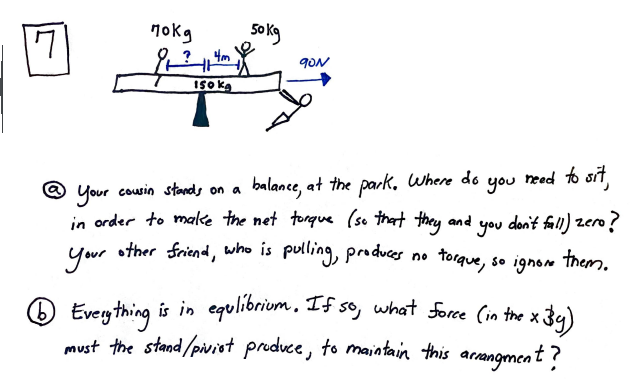 7
70kg
50kg
?
4m
90N
150kg
ⓐ Your cousin stands on a balance, at the park. Where do you need to sit,
in order to make the net torque (so that they and you don't fall) zero?
Your other friend, who is pulling, produces no torque, so ignore them.
ⓑ Everything is in equlibrium. If so, what force (in the x & y)
must the stand/piviot produce, to maintain this arrangment?